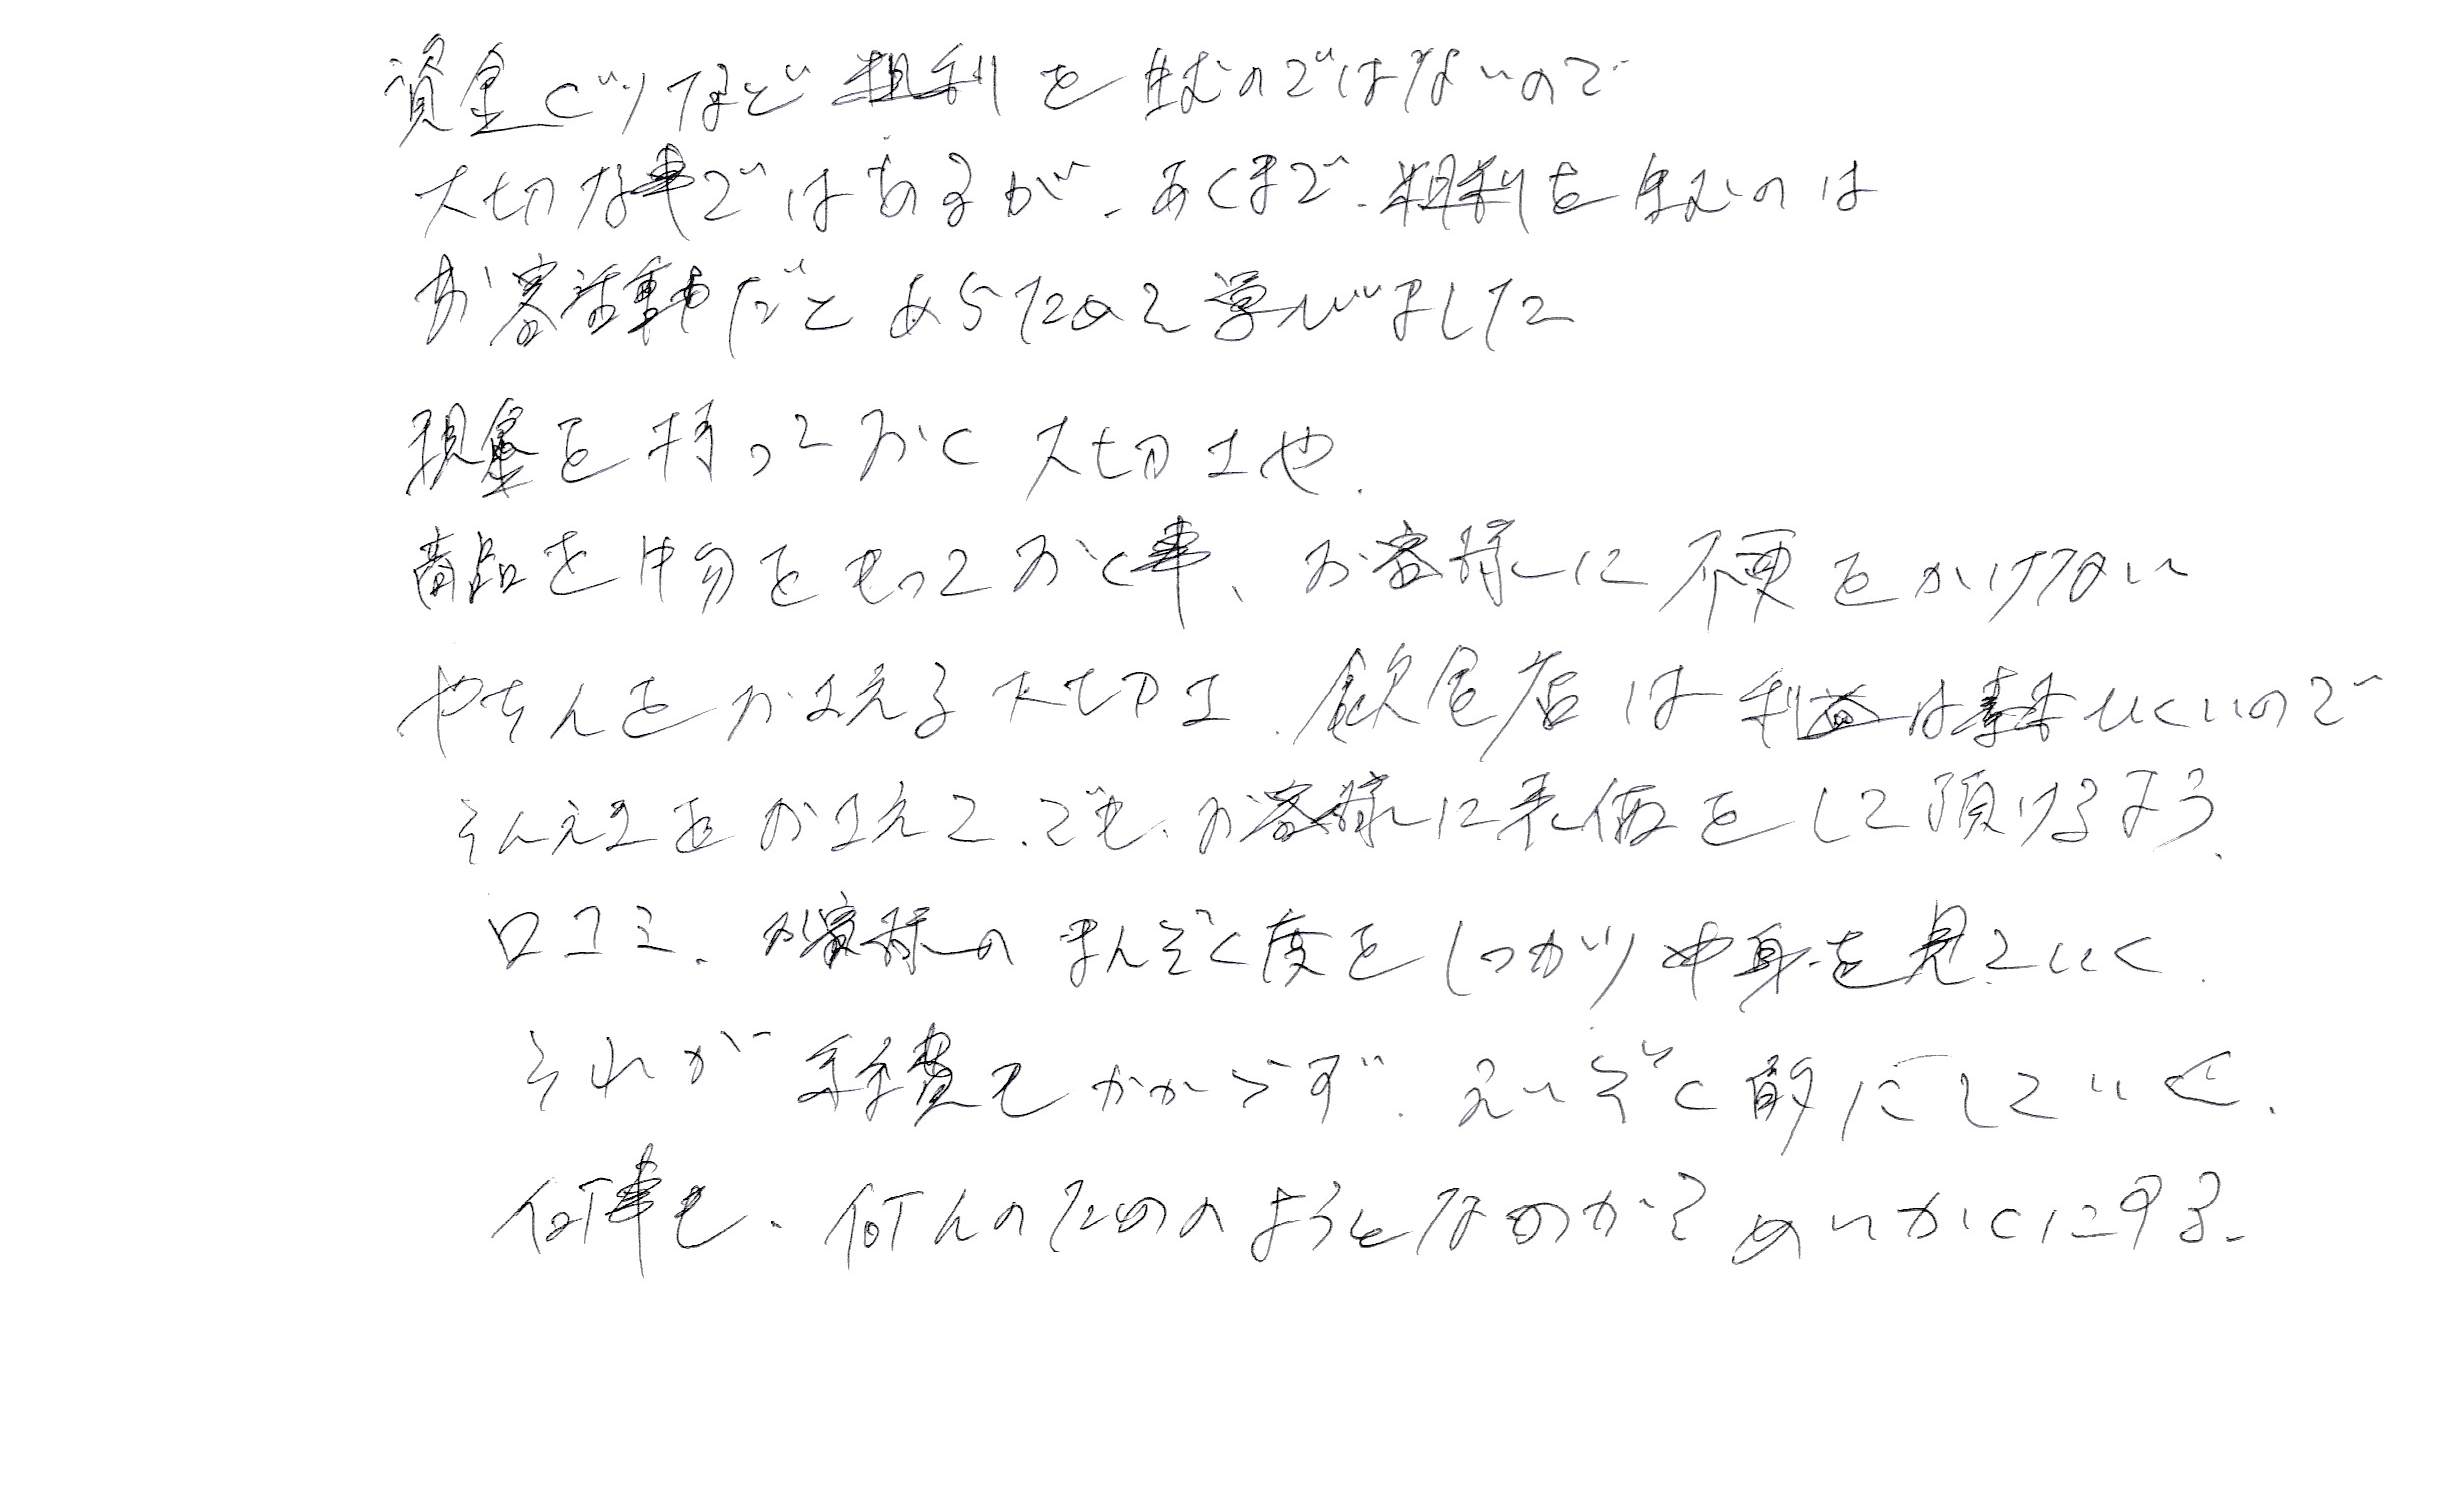 資金ぐりなど粗利を生むのではないので
大切な事ではあるが、あくまで、粗利を生むのは
お客活動だとあらためて学びました
現金を持っておく大切さや、
商品を中身をもっておく事、お客様に不便をかけない
やちんをおさえる大切さ、飲食店は利益は薄いので
そんえきをおさえて、でも、お客様に評価をして頂けるよう、
口コミ、お客様のまんぞく度をしっかり中身を見ていく、
それが 費もかからず、えいぞく的にしていく、
何事も、何んのためのようとなのか?めいかくにする、